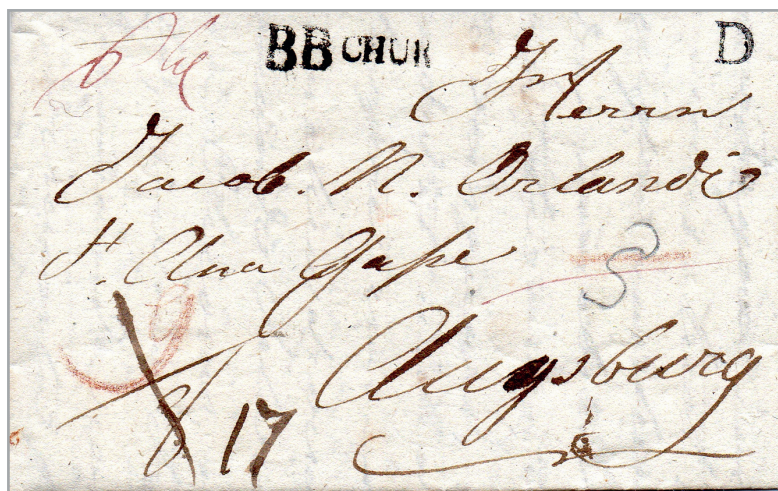 BB CHUR D
Herrn
Jacob. N. Orlandi
St. Ana Gasse
Augsburg
17